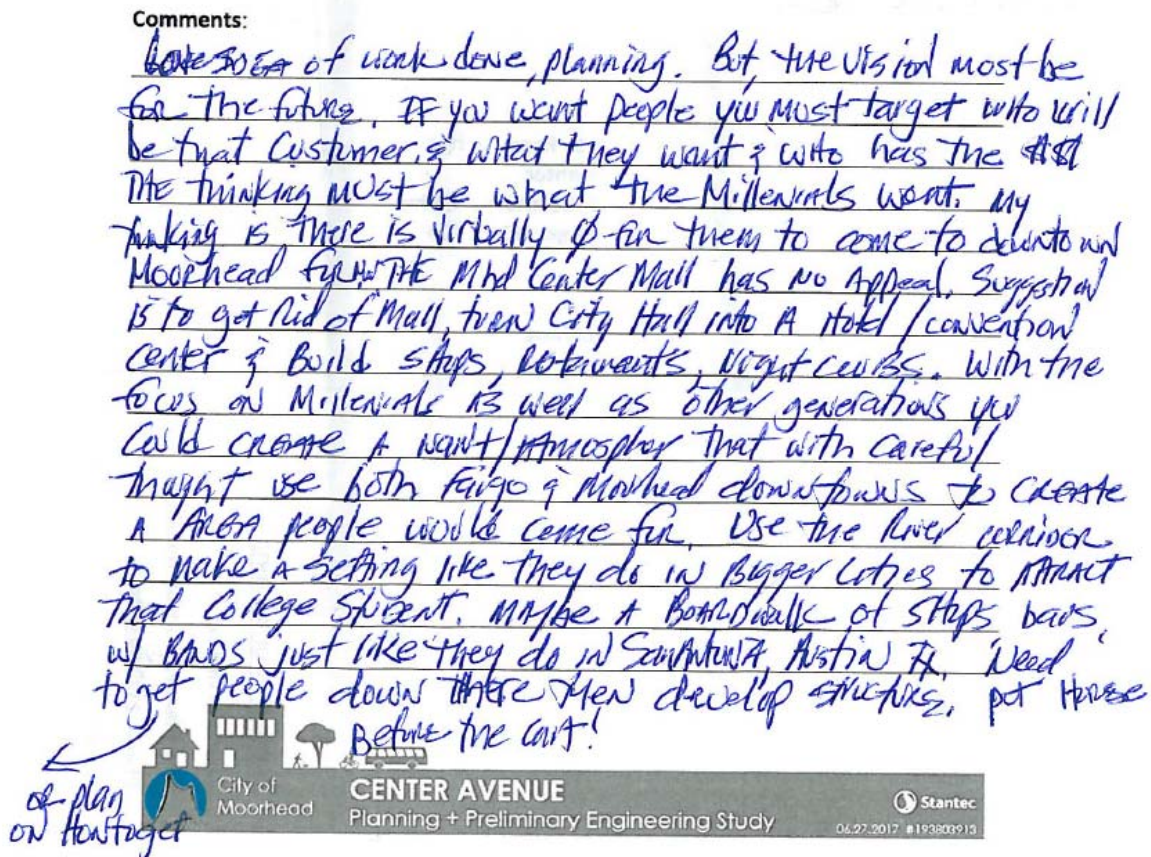 Comments:
Love IDEA of work done, planning. But, the vision most be
for the future. IF you want people you must target who will
be that Custumer, & what they want & who has the $$$!
THE thinking must be what the Millenials want. My
thinking is there is virbally Ø for them to come to downtown
Moorhead for. THE Mhd Center Mall has NO Appeal. Suggestion
is to get Rid of Mall, turn City Hall into A Hotel / convention
center & Build shops, Restaurants, Night clubs. With the
focus on Millenials AS well as other generations you
Could CREATE A want/Atmospher that with careful
thought use both Fargo & Moorhead downtowns to CREATE
A AREA people would come for. Use the River corridor
to make A Setting like they do in Bigger Cities to ATRACT
that College Student. Maybe A BOARDwalk of shops bars,
w/ BANDS just like they do in San Antonia, Austin TX. Need
to get people down there then develop structure, put Horse
Before the Cart!
or plan
on How to get
City of
Moorhead
CENTER AVENUE
Planning + Preliminary Engineering Study
Stantec
06.27.2017 #193803913